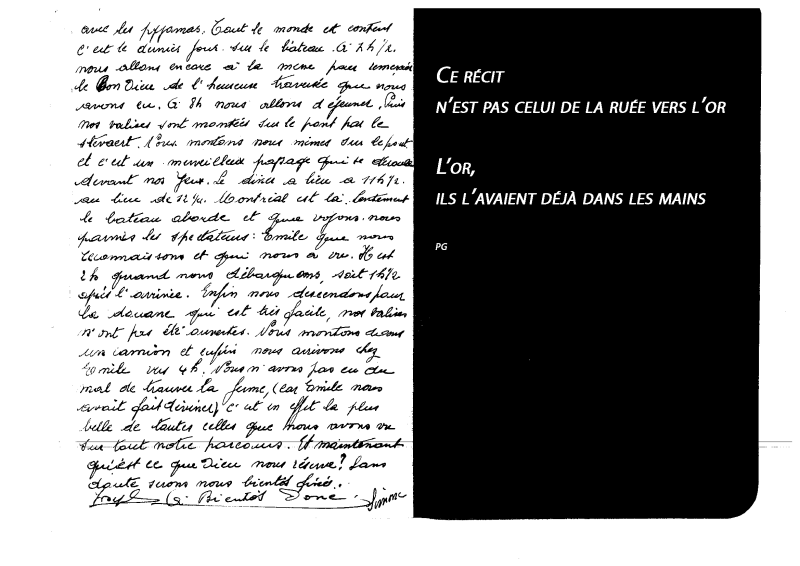 avec les pyjamas. Tout le monde est content
c'est le dernier jour sur le bateau. A 7h1/2.
nous allons encore à la messe pour remercier
le Bon Dieu de l'heureuse traversée que nous
avons eu. A 8h nous allons déjeuner. Puis
nos valises sont montées sur le pont par le
stewaert. Nous montons nous mêmes sur le pont
et c'est un merveilleux paysage qui se déroule
devant nos yeux. Le diner a lieu a 11h1/2.
au lieu de 12 1/4. Montréal est là. Lentement
le bateau aborde et que voyons-nous
parmis les spectateurs: Emile que nous
reconnaissons et qui nous a vu. Il est
2h quand nous débarquons, soit 1h1/2
après l'arrivée. Enfin nous descendons pour
la douane qui est très facile, nos valises
n'ont pas été ouvertes. Nous montons dans
un camion et enfin nous arrivons chez
Emile vers 4h. Nous n'avons pas eu du
mal de trouver la ferme, (car Emile nous
avait fait deviner) c'est en effet la plus
belle de toutes celles que nous avons vu
sur tout notre parcours. Et maintenant
qu'est ce que Dieu nous réserve? Sans
doute serons nous bientôt fixés.
A Bientôt Donc. Simone
CE RÉCIT
N'EST PAS CELUI DE LA RUÉE VERS L'OR
L'OR,
ILS L'AVAIENT DÉJÀ DANS LES MAINS
PG